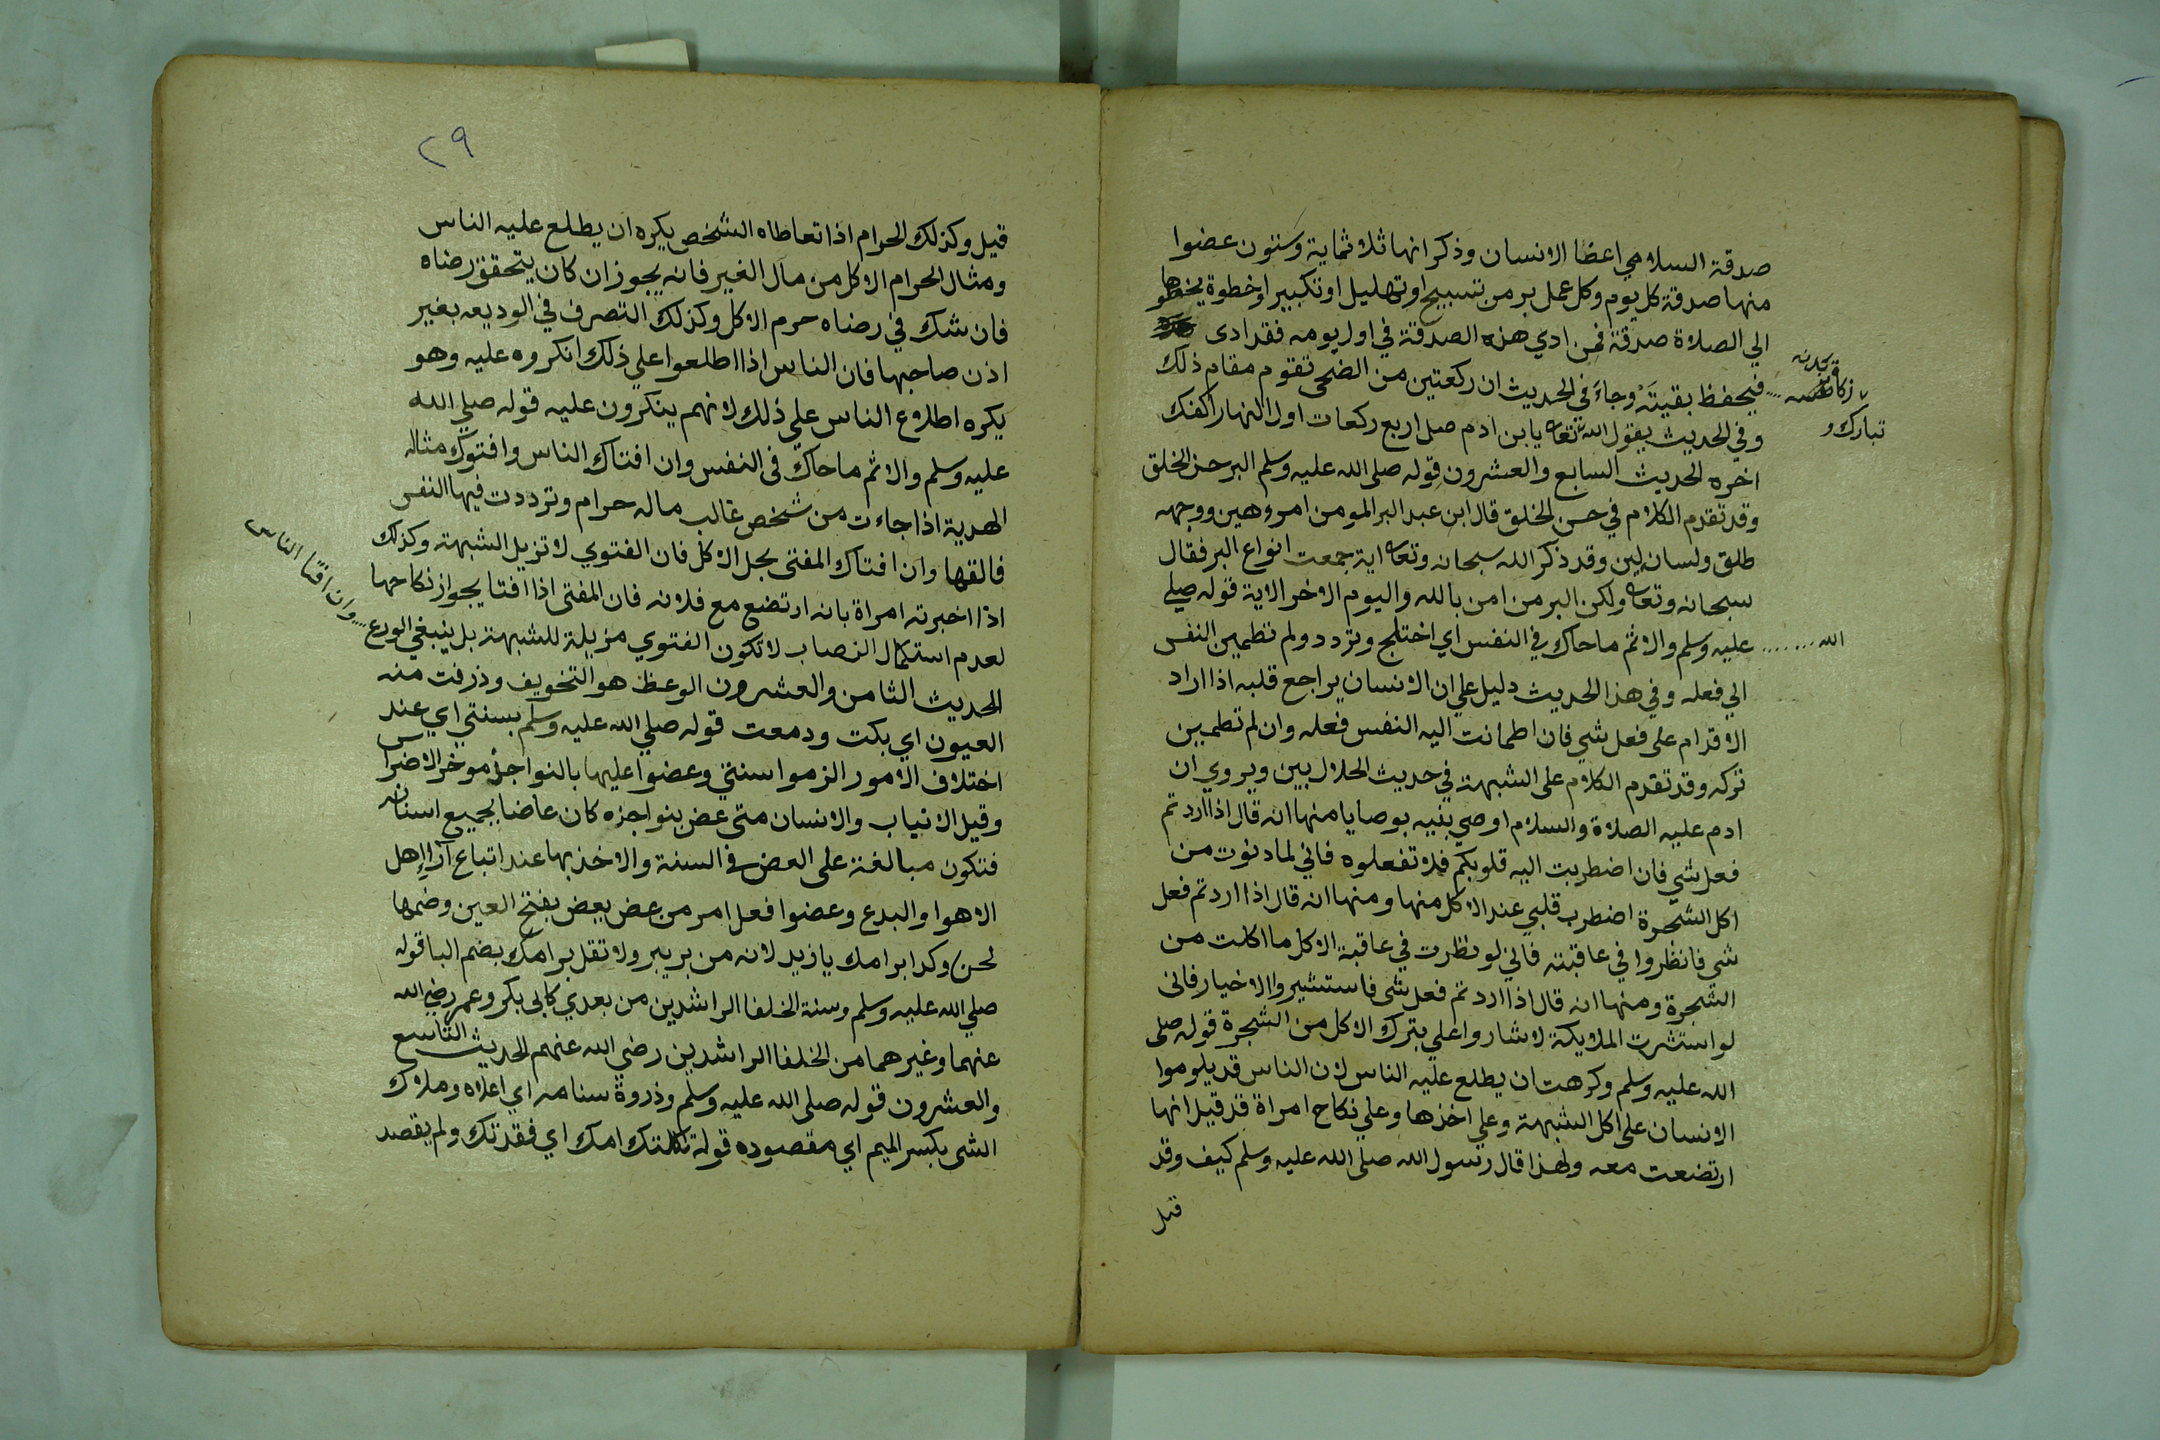 صدقة السلامي اعضا الانسان وذكر انها ثلاثماية وستون عضوا
منها صدقة كل يوم وكل عمل بر من تسبيح او تهليل او تكبير او خطوة يخطوها
الي الصلاة صدقة فمن ادي هذه الصدقة في اول يومه فقد ادى
زكاة بدنه
فيحفظ بقيته وجاء في الحديث ان ركعتين من الضحى تقوم مقام ذلك
تبارك و
وفي الحديث يقول الله تعالى يا بن ادم صل اربع ركعات اول النهار اكفك
اخره الحديث السابع والعشرون قوله صلى الله عليه وسلم البر حسن الخلق
وقد تقدم الكلام في حسن الخلق قال ابن عبد البر المومن امره هين ووجهه
طلق ولسان لين وقد ذكر الله سبحانه وتعالى اية جمعت انواع البر فقال
سبحانه وتعالى ولكن البر من امن بالله واليوم الاخر الاية قوله صلي
الله
عليه وسلم والاثم ما حاك في النفس اي اختلج وتردد ولم تطمين النفس
الي فعله وفي هذا الحديث دليل علي ان الانسان يراجع قلبه اذا اراد
الاقدام على فعل شي فان اطمانت اليه النفس فعله وان لم تطمين
تركه وقد تقدم الكلام على الشبهة في حديث الحلال بين ويروي ان
ادم عليه الصلاة والسلام اوصي بنيه بوصايا منها انه قال اذا اردتم
فعل شي فان اضطربت اليه قلوبكم فلا تفعلوه فاني لما دنوت من
اكل الشجرة اضطرب قلبي عند الاكل منها ومنها انه قال اذا اردتم فعل
شي فانظروا في عاقبته فاني لو نظرت في عاقبة الاكل ما اكلت من
الشجرة ومنها انه قال اذا اردتم فعل شي فاستشيروا الاخيار فانى
لو استشرت الملايكة لاشاروا علي بترك الاكل من الشجرة قوله صلى
الله عليه وسلم وكرهت ان يطلع عليه الناس لان الناس قد يلوموا
الانسان على اكل الشبهة وعلي اخذها وعلي نكاح امراة قد قيل انها
ارتضعت معه ولهذا قال رسول الله صلى الله عليه وسلم كيف وقد
قيل
٢٩
قيل وكذلك الحرام اذا تعاطاه الشخص يكره ان يطلع عليه الناس
ومثال الحرام الاكل من مال الغير فانه يجوز ان كان يتحقق رضاه
فان شك في رضاه حرم الاكل وكذلك التصرف في الوديعه بغير
اذن صاحبها فان الناس اذا اطلعوا علي ذلك انكروه عليه وهو
يكره اطلاع الناس علي ذلك لانهم ينكرون عليه قوله صلي الله
عليه وسلم والاثم ما حاك في النفس وان افتاك الناس وافتوك مثاله
الهدية اذا جاءت من شخص غالب ماله حرام وترددت فيها النفس
فالقها وان افتاك المفتى بحل الاكل فان الفتوي لا تزيل الشبهة وكذلك
اذا اخبرته امراة بانه ارتضع مع فلانه فان المفتى اذا افتا بجواز نكاحها
لعدم استكمال النصاب لا تكون الفتوي مزيلة للشبهة بل ينبغي الورع
وان افتا الناس
الحديث الثامن والعشرون الوعظ هو التخويف وذرفت منه
العيون اي بكت ودمعت قوله صلي الله عليه وسلم بسنتي اي عند
اختلاف الامور الزموا سنتي وعضوا عليها بالنواجذ موخر الاضراس
وقيل الانياب والانسان متى عض بنواجذه كان عاضا بجميع اسنانه
فتكون مبالغة على العض في السنة والاخذ بها عند اتباع آراء اهل
الاهوا والبدع وعضوا فعل امر من عض يعض بفتح العين وضمها
لحن وكذا بر امك يا زيد لانه من بر يبر ولا تقل بر امك بضم البا قوله
صلي الله عليه وسلم وسنة الخلفا الراشدين من بعدي كابى بكر وعمر رضي الله
عنهما وغيرهما من الخلفا الراشدين رضي الله عنهم الحديث التاسع
والعشرون قوله صلى الله عليه وسلم وذروة سنامه اي اعلاه وملاك
الشي بكسر الميم اي مقصوده قوله ثكلتك امك اي فقدتك ولم يقصد